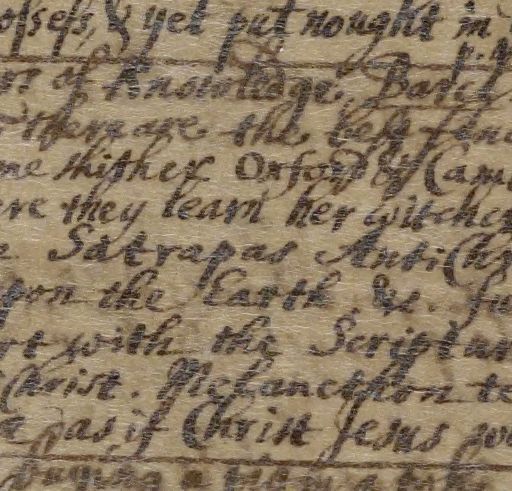 ossess, & yet put nought in
of Knowledge. Barcl
there are the
me thither Oxford & Cam
ere they learn her witche
e Satrapas Anti Chr
pon the Earth &c. fu
rt with the Scriptur
Christ. Melancthon te
as if Christ Jesus wo